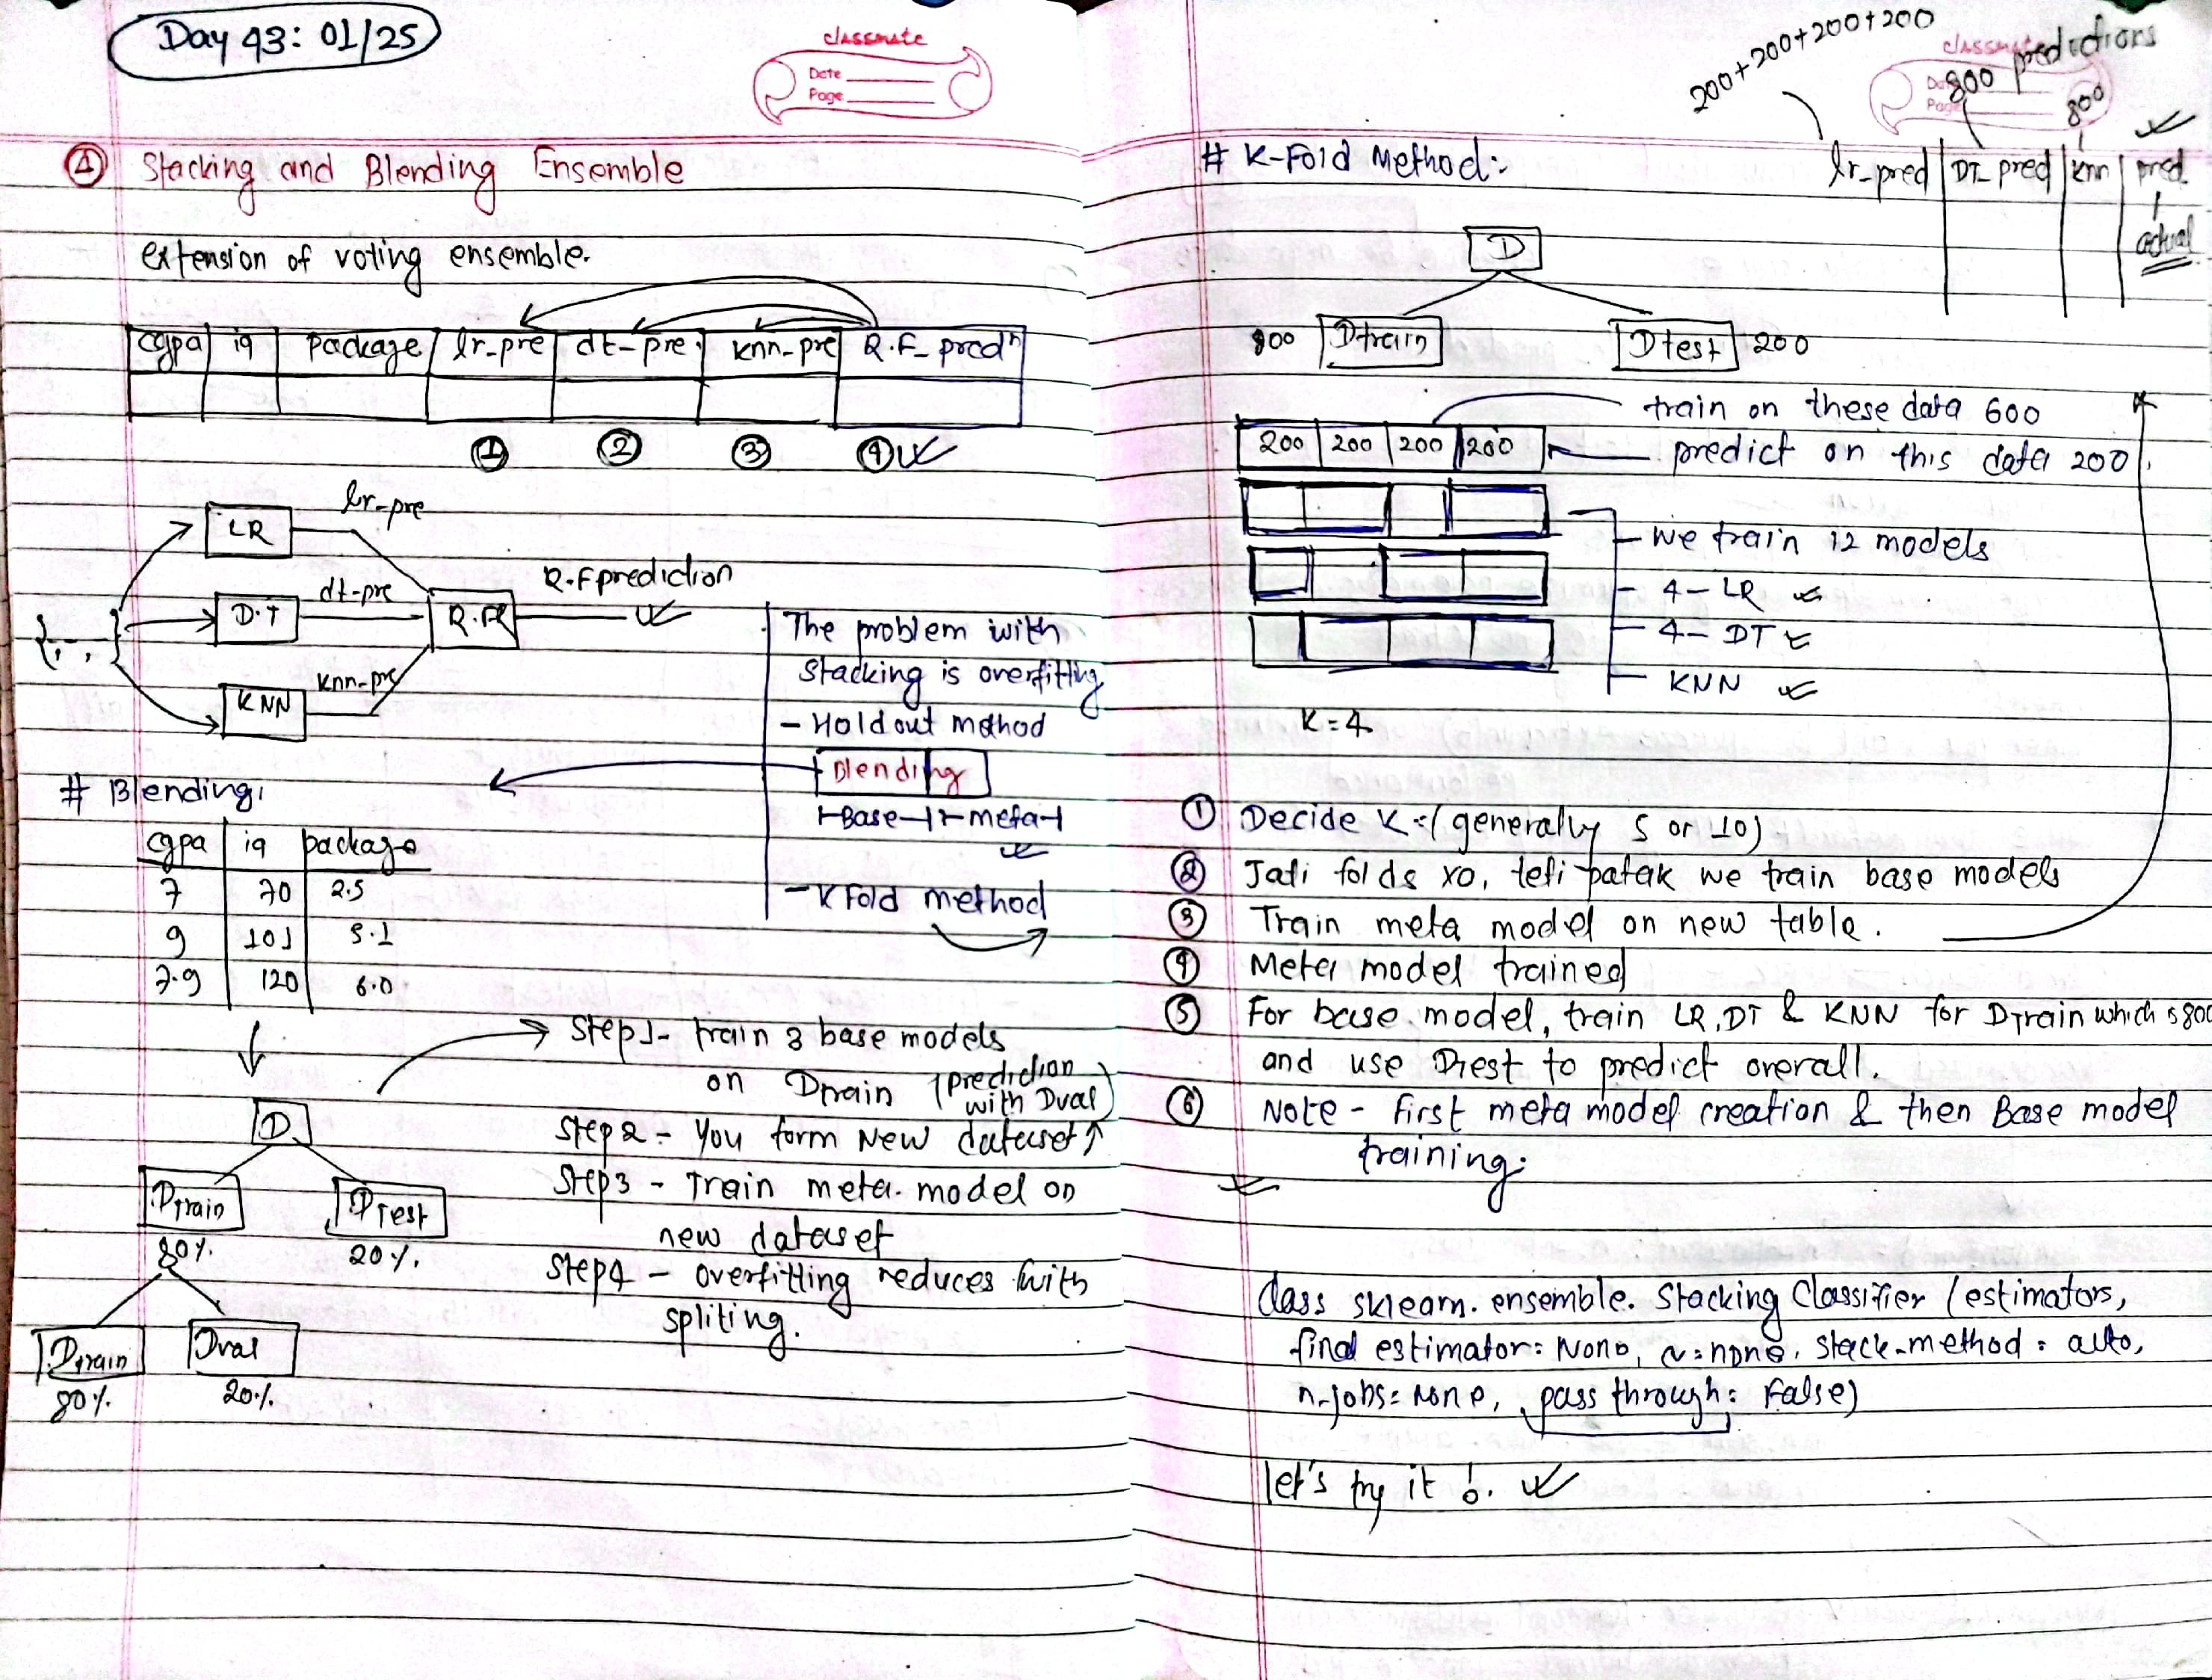 Day 43: 01/25
classmate
Date
Page
④ Stacking and Blending Ensemble
extension of voting ensemble.
cgpa iq package lr-pre dt-pre knn-pre R.F_predⁿ
① ② ③ ④
LR lr-pre
D.T dt-pre
KNN knn-pre
R.F R.F prediction
{ , , }
The problem with
stacking is overfitting
- Hold out method
Blending
Base meta
- K Fold method
# Blending:
cgpa iq package
7 70 2.5
9 101 5.1
7.9 120 6.0
D
DTrain DTest
80%. 20%.
DTrain Dval
80%. 20%.
Step1- train 3 base models
on DTrain (prediction
with Dval)
Step2 - You form New dataset
Step3 - Train meta. model on
new dataset
Step4 - overfitting reduces with
spliting.
200+200+200+200
classmate
Date
Page
800 predictions
800
# K-Fold Method:-
lr-pred DT_pred knn pred
actual
D
800 Dtrain Dtest 200
train on these data 600
200 200 200 200 predict on this data 200
we train 12 models
- 4- LR
- 4- DT
- KNN
K=4
① Decide K=(generally 5 or 10)
② Jati folds xo, teti patak we train base models
③ Train meta model on new table.
④ Meta model trained
⑤ For base model, train LR, DT & KNN for DTrain which is 800
and use DTest to predict overall.
⑥ Note - first meta model creation & then Base model
training.
Class sklearn. ensemble. Stacking Classifier (estimators,
final estimator= None, cv=none, stack-method = auto,
n-jobs= None, pass through= False)
let's try it !